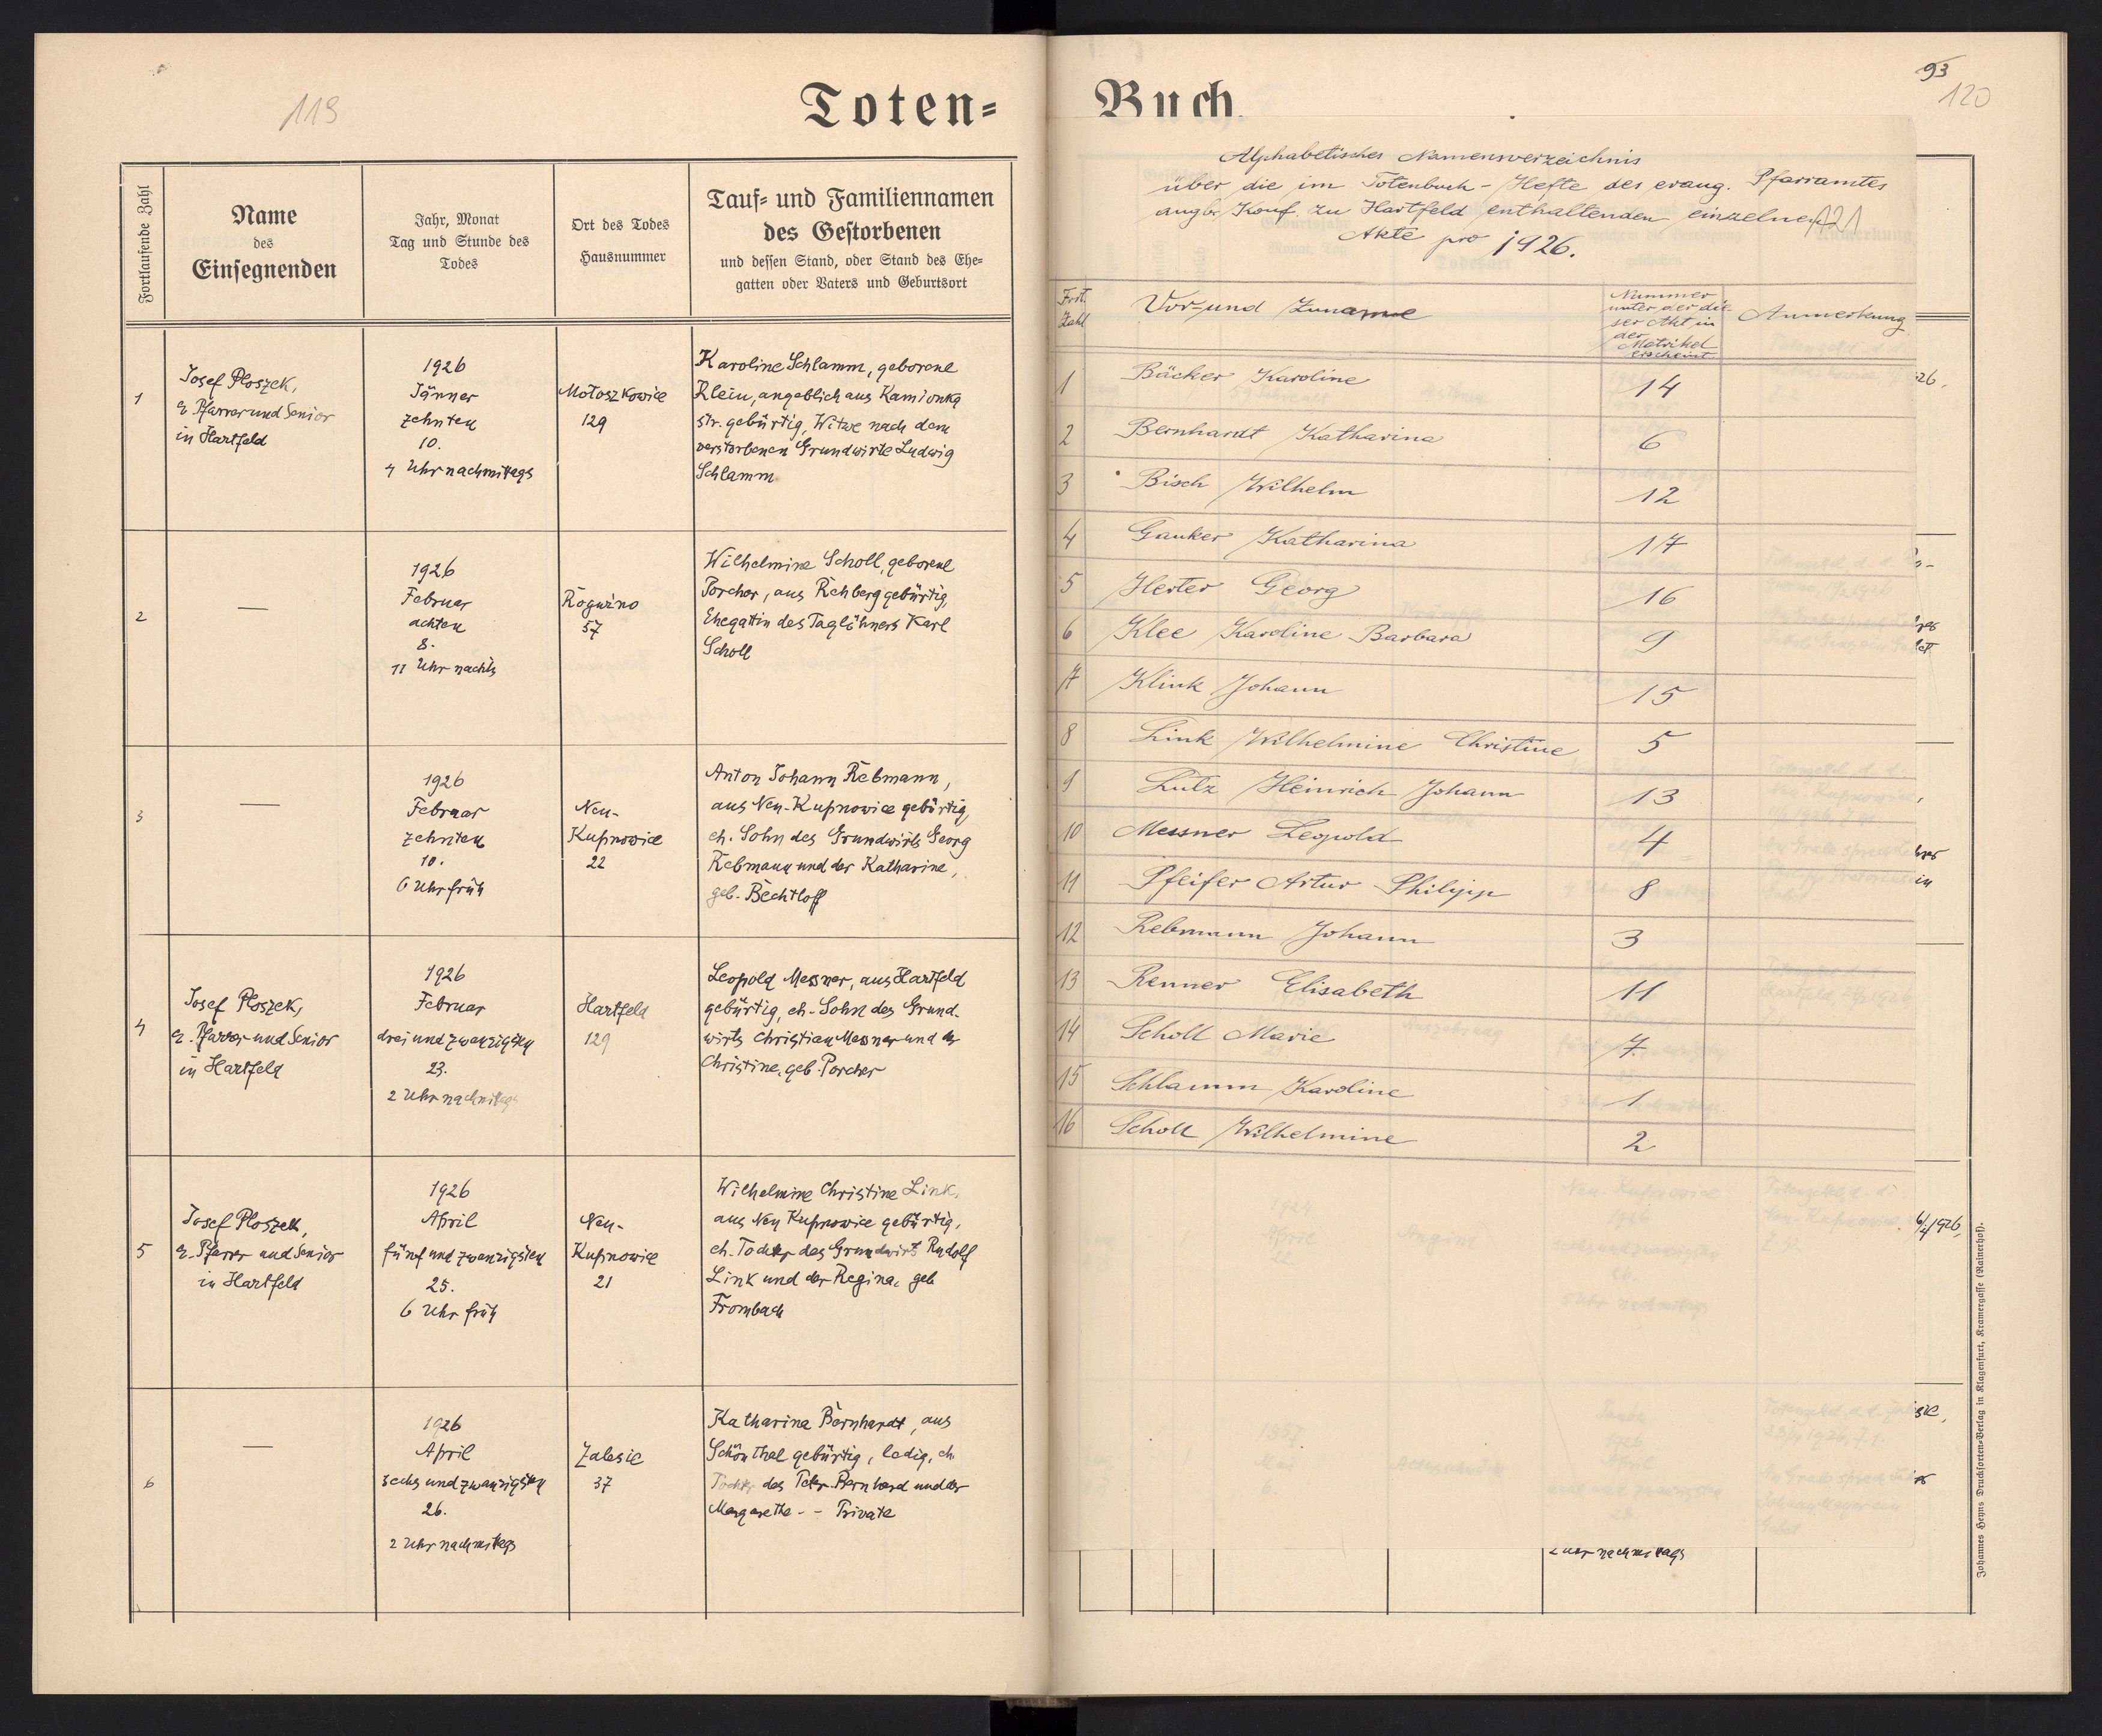 119
Toten=
Fortlaufende Zahl
Name
des
Einsegnenden
Jahr, Monat
Tag und Stunde des
Todes
Ort des Todes
Hausnummer
Tauf= und Familiennamen
des Gestorbenen
und dessen Stand, oder Stand des Ehe=
gatten oder Vaters und Geburtsort
1
Josef Ploszek,
e. Pfarrer und Senior
in Hartfeld
1926
Jänner
zehnten
10.
4 Uhr nachmittags
Mołoszkowice
129
Karoline Schlamm, geborene
Klein, angeblich aus Kamionka
str. gebürtig, Witwe nach dem
verstorbenen Grundwirte Ludwig
Schlamm
2
—
1926
Februar
achten
8.
11 Uhr nachts
Rogużno
57
Wilhelmine Scholl, geborene
Porcher, aus Rehberg gebürtig,
Ehegattin des Taglöhners Karl
Scholl
3
—
1926
Februar
zehnten
10.
6 Uhr früh
Neu-
Kupnowice
22
Anton Johann Rebmann,
aus Neu-Kupnowice gebürtig,
eh. Sohn des Grundwirts Georg
Rebmann und der Katharine,
geb. Bechtloff
4
Josef Ploszek,
e. Pfarrer und Senior
in Hartfeld
1926
Februar
drei und zwanzigsten
23.
2 Uhr nachmittags
Hartfeld
129
Leopold Messner, aus Hartfeld
gebürtig, eh. Sohn des Grund-
wirts Christian Messner und der
Christine, geb. Porcher
5
Josef Ploszek,
e. Pfarrer und Senior
in Hartfeld
1926
April
fünf und zwanzigsten
25.
6 Uhr früh
Neu-
Kupnowice
21
Wilhelmine Christine Link,
aus Neu Kupnowice gebürtig,
eh. Tochter des Grundwirts Rudolf
Link und der Regina, geb
Frombach
6
—
1926
April
sechs und zwanzigsten
26.
2 Uhr nachmittags
Zalesie
37
Katharina Bernhardt, aus
Schönthal gebürtig, ledig, eh.
Tochter des Peter Bernhard und der
Margarethe - - Private
Buch.
93
120
Alphabetisches Namensverzeichnis
über die im Totenbuch-Hefte des evang. Pfarramtes
augsb. Konf. zu Hartfeld enthaltenden einzelnen
121
Akte pro 1926.
Fort. Zahl
Vor- und Zuname
Nummer
unter der die-
ser Akt in
der
Matrikel
erscheint.
Anmerkung
1 Bäcker Karoline 14
2 Bernhardt Katharina 6
3 Bisch Wilhelm 12
4 Gauker Katharina 17
5 Herter Georg 16
6 Klee Karoline Barbara 9
7 Klink Johann 15
8 Link Wilhelmine Christine 5
9 Lutz Heinrich Johann 13
10 Messner Leopold 4
11 Pfeifer Artur Philipp 8
12 Rebmann Johann 3
13 Renner Elisabeth 11
14 Scholl Marie 7
15 Schlamm Karoline 1
16 Scholl Wilhelmine 2
Uhr nachmittags
Johannes Heyns Drucksorten=Verlag in Klagenfurt, Kramergasse (Rainerhof).